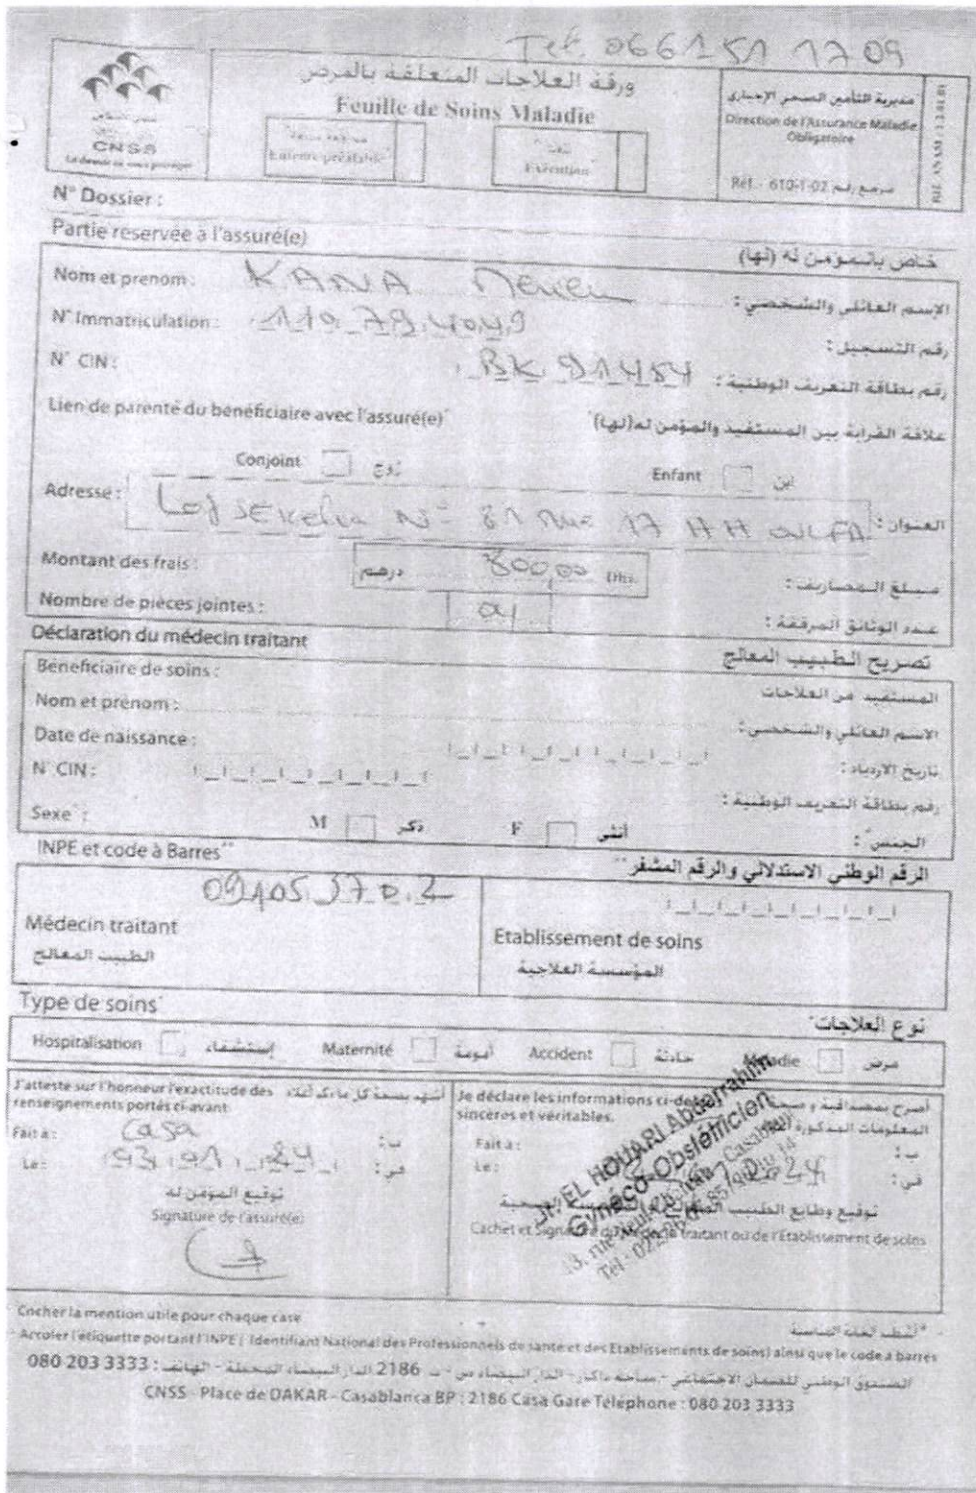 Tel. 0661 51 17 09
CNSS
ورقة العلاجات المتعلقة بالمرض
Feuille de Soins Maladie
Entente préalable
Exécution
مديرية التأمين الصحي الإجباري
Direction de l'Assurance Maladie Obligatoire
Réf. - 610-1-02 مرجع رقم
N° Dossier :
Partie réservée à l'assuré(e)
خاص بالمؤمن له (لها)
Nom et prénom : KANA
الإسم العائلي والشخصي :
N° Immatriculation : 119794049
رقم التسجيل :
N° CIN : BK 91454
رقم بطاقة التعريف الوطنية :
Lien de parenté du bénéficiaire avec l'assuré(e)*
علاقة القرابة بين المستفيد والمؤمن له(لها)*
Conjoint زوج
Enfant ابن
Adresse : N° 81 Rue 17 HH OULFA
العنوان :
Montant des frais : درهم 800,00 Dhs.
مبلغ المصاريف :
Nombre de pièces jointes : 01
عدد الوثائق المرفقة :
Déclaration du médecin traitant
تصريح الطبيب المعالج
Bénéficiaire de soins :
المستفيد من العلاجات
Nom et prénom :
الاسم العائلي والشخصي :
Date de naissance :
تاريخ الازدياد :
N° CIN :
رقم بطاقة التعريف الوطنية :
Sexe* : M ذكر F أنثى
الجنس* :
INPE et code à Barres**
الرقم الوطني الاستدلالي والرقم المشفر**
091053702
Médecin traitant
الطبيب المعالج
Etablissement de soins
المؤسسة العلاجية
Type de soins*
نوع العلاجات*
Hospitalisation إستشفاء Maternité أمومة Accident حادثة Maladie مرض
J'atteste sur l'honneur l'exactitude des renseignements portés ci-avant
أشهد بصحة كل ما ذكر أعلاه
Fait à : Casa ب :
Le : في :
توقيع المؤمن له
Signature de l'assuré(e)
Je déclare les informations ci-dessus sincères et véritables.
أصرح بمصداقية و صحة المعلومات المذكورة أعلاه
Fait à : ب :
Le : في :
توقيع وطابع الطبيب المعالج أو المؤسسة الصحية
Cachet et Signature du Médecin traitant ou de l'Etablissement de soins
Dr. EL HOUARI Abderrahim
Gynéco-Obstétricien
*Cocher la mention utile pour chaque case
**Accoler l'étiquette portant l'INPE ( Identifiant National des Professionnels de santé et des Etablissements de soins) ainsi que le code à barres
الصندوق الوطني للضمان الاجتماعي - ساحة داكار - الدار البيضاء ص - ب 2186 الدار البيضاء المحطة - الهاتف : 080 203 3333
CNSS - Place de DAKAR - Casablanca BP : 2186 Casa Gare Téléphone : 080 203 3333